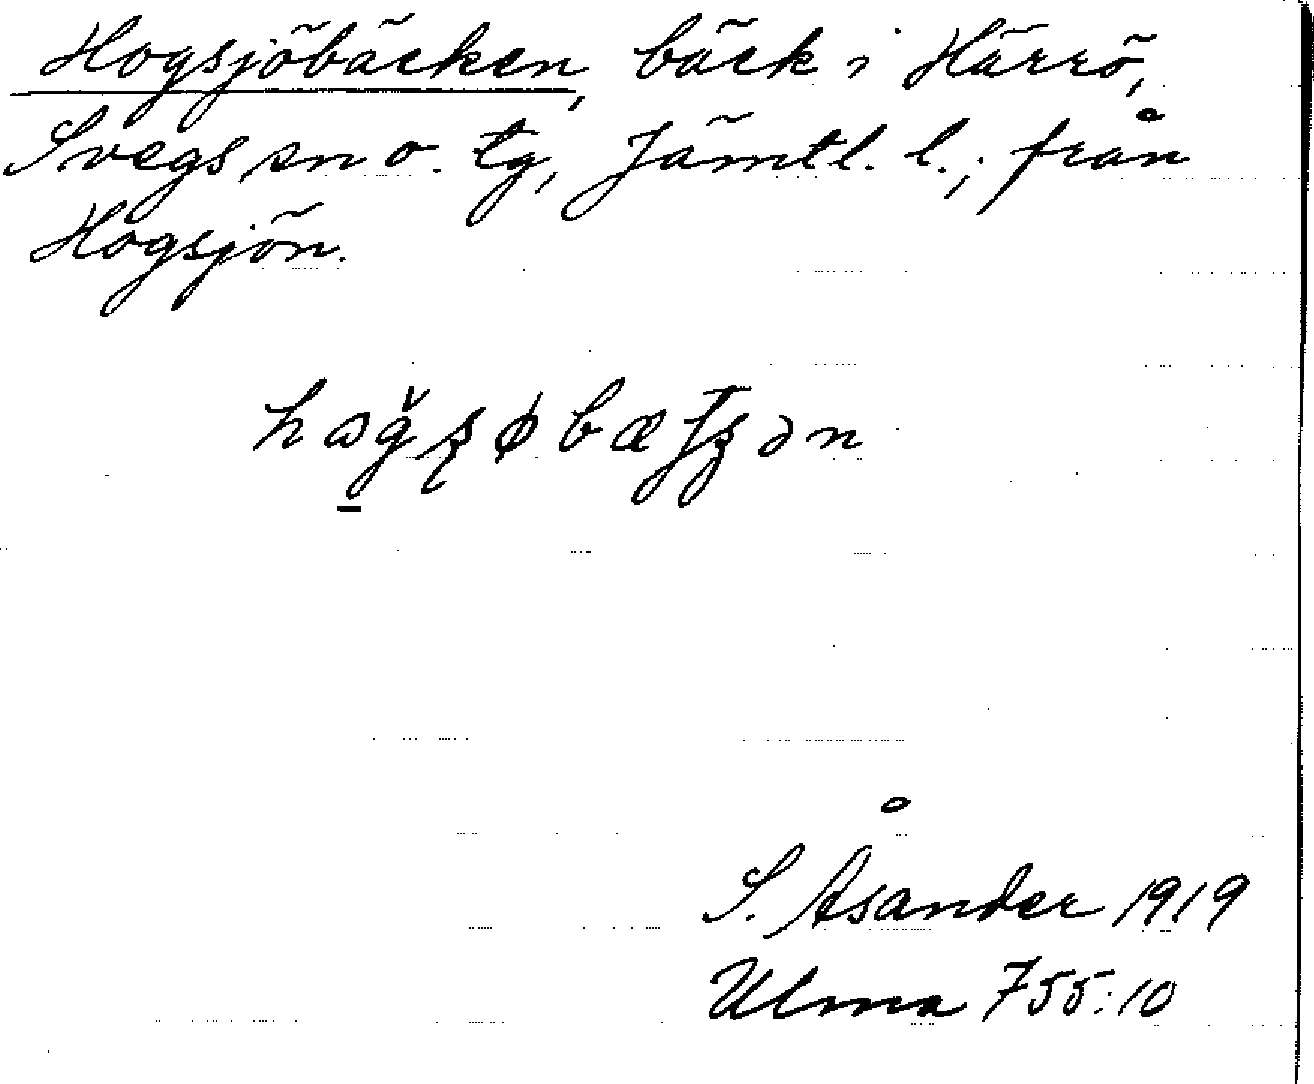 Hogsjöbäcken, bäck i Härrö,
Svegs sn o. tg, Jämtl. l.; från
Hogsjön.
S. Åsander 1919
Ulma 755:10